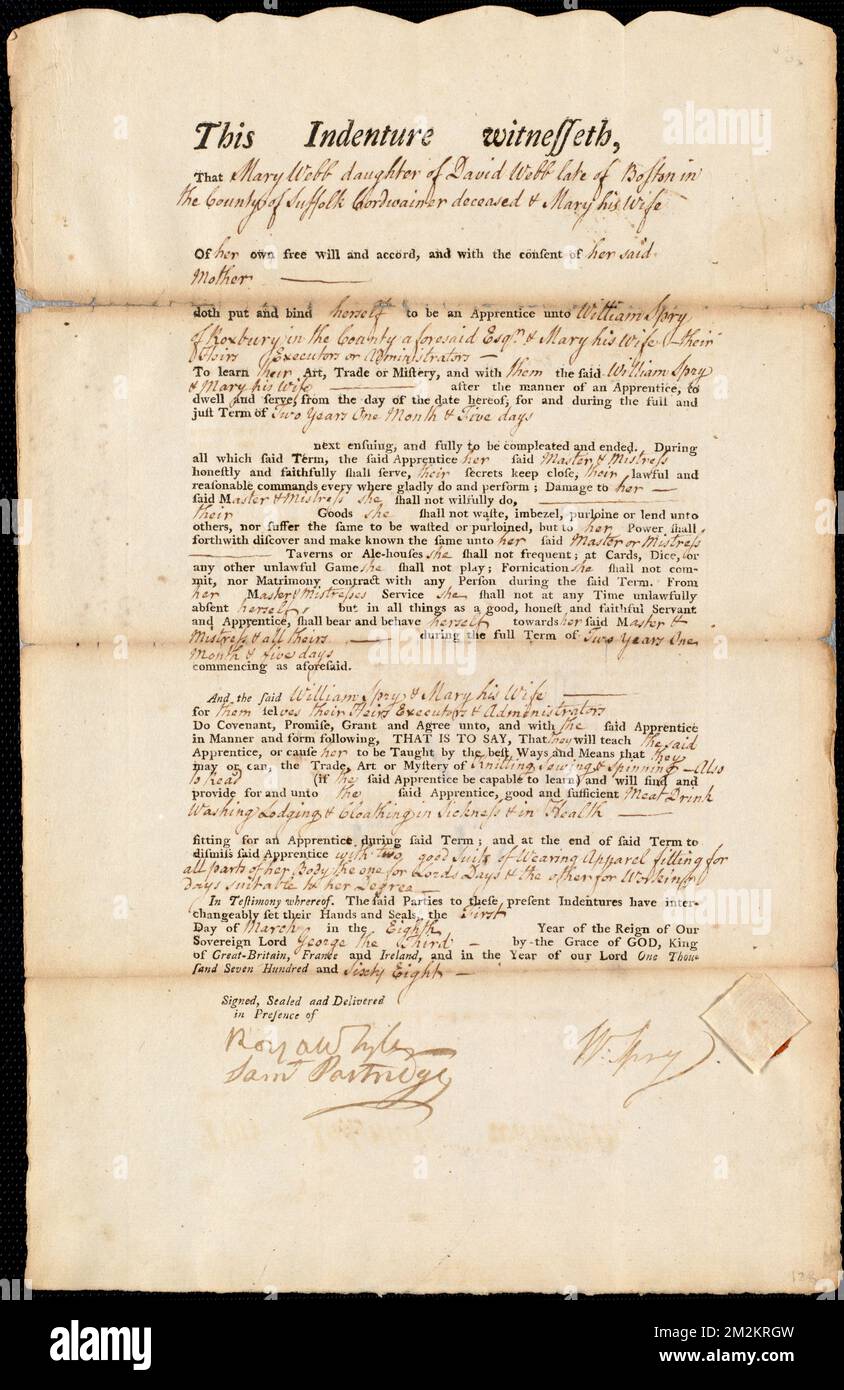 This Indenture witnesseth,
That Mary Webb daughter of David Webb late of Boston in
the County of Suffolk Cordwainer deceased & Mary his Wife
Of her own free will and accord, and with the consent of her said
Mother
doth put and bind herself to be an Apprentice unto William Spry
of Roxbury in the County aforesaid Esqr. & Mary his Wife their
Heirs Executors or Administrators
To learn their Art, Trade or Mistery, and with them the said William Spry
& Mary his Wife after the manner of an Apprentice, to
dwell and serve, from the day of the date hereof, for and during the full and
just Term of Two Years One Month & Five days
next ensuing, and fully to be compleated and ended. During
all which said Term, the said Apprentice her said Master & Mistress
honestly and faithfully shall serve, their secrets keep close, their lawful and
reasonable commands every where gladly do and perform; Damage to her
said Master & Mistress she shall not wilfully do,
their Goods she shall not waste, imbezel, purloine or lend unto
others, nor suffer the same to be wasted or purloined, but to her Power shall
forthwith discover and make known the same unto her said Master or Mistress
Taverns or Ale-houses she shall not frequent; at Cards, Dice, or
any other unlawful Game she shall not play; Fornication she shall not com-
mit, nor Matrimony contract with any Person during the said Term. From
her Master & Mistresses Service she shall not at any Time unlawfully
absent herself, but in all things as a good, honest and faithful Servant
and Apprentice, shall bear and behave herself towards her said Master &
Mistress & all theirs during the full Term of Two Years One
Month & five days
commencing as aforesaid.
And the said William Spry & Mary his Wife
for themselves their Heirs Executors & Administrators
Do Covenant, Promise, Grant and Agree unto, and with the said Apprentice
in Manner and form following, THAT IS TO SAY, That they will teach the said
Apprentice, or cause her to be Taught by the best Ways and Means that they
may or can, the Trade, Art or Mystery of Knitting Sewing & Spinning – Also
to read (if the said Apprentice be capable to learn) and will find and
provide for and unto the said Apprentice, good and sufficient Meat Drink
Washing Lodging & Cloathing in Sickness & in Health
fitting for an Apprentice during said Term; and at the end of said Term to
dismiss said Apprentice with two good suits of Wearing Apparel fitting for
all parts of her Body the one for Lords Days & the other for Working
Days suitable to her Degree
In Testimony whrereof. The said Parties to these present Indentures have inter-
changeably set their Hands and Seals, the First
Day of March in the Eighth Year of the Reign of Our
Sovereign Lord George the Third by the Grace of GOD, King
of Great-Britain, France and Ireland, and in the Year of our Lord One Thou-
sand Seven Hundred and Sixty Eight
Signed, Sealed aad Delivered
in Presence of
Royall Tyler
Saml Partridge
Wm. Spry
alamy
Image ID: 2M2KRGW
www.alamy.com